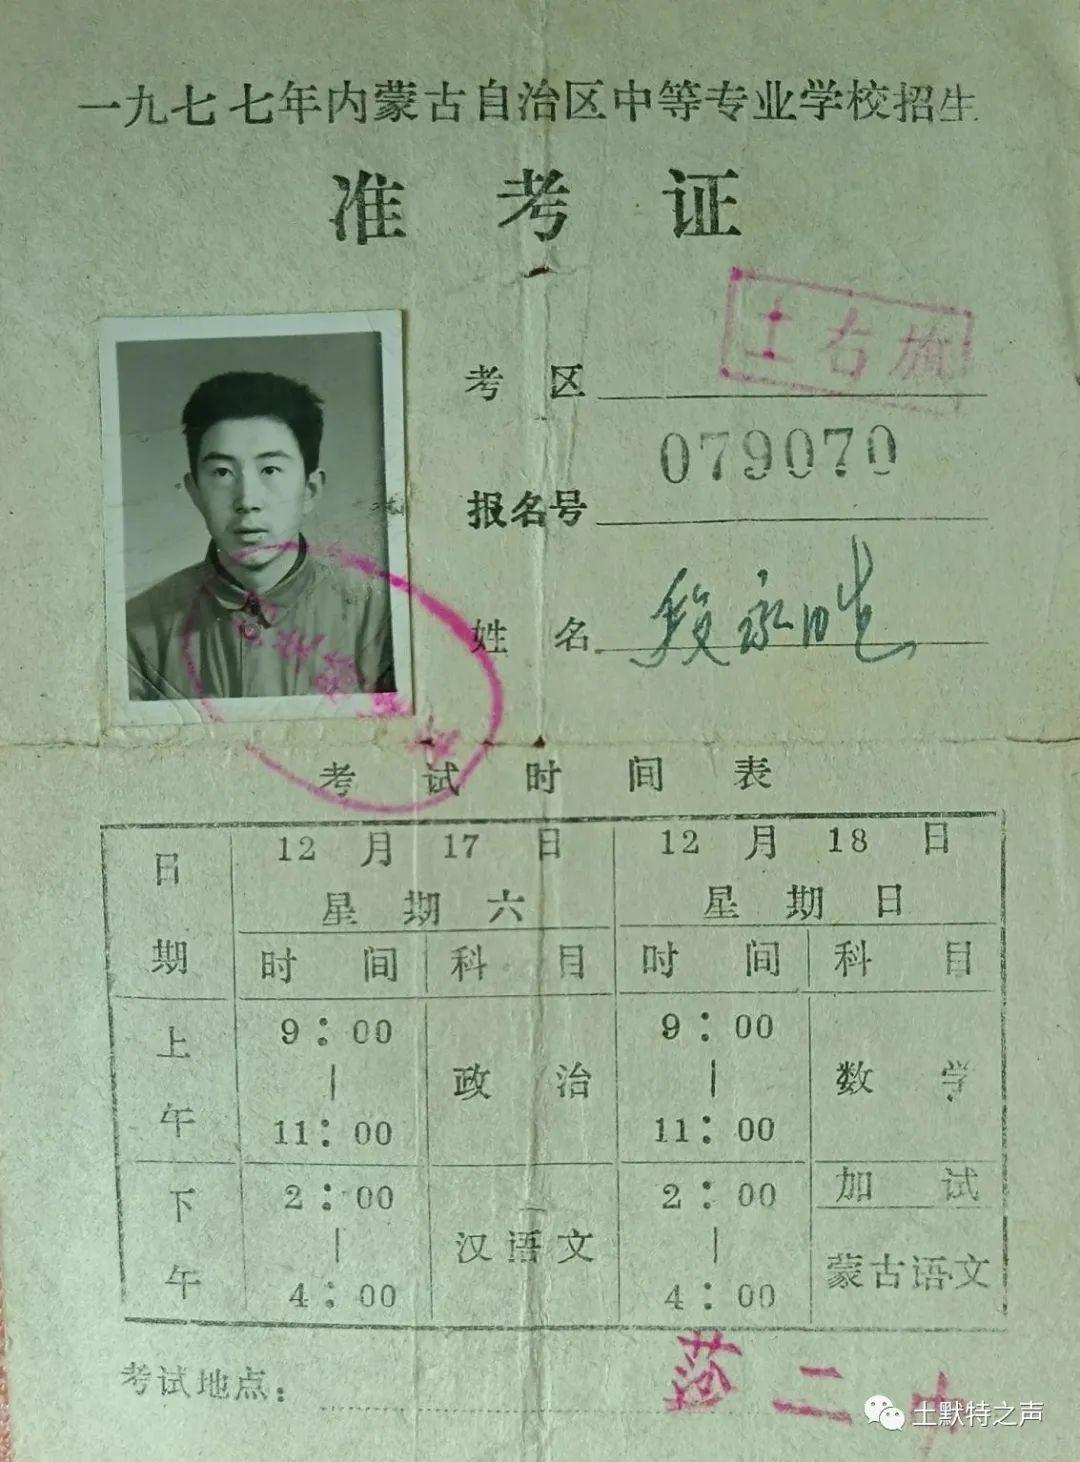 一九七七年内蒙古自治区中等专业学校招生
准考证
考区 土右旗
报名号 079070
姓名 段永胜
考试时间表
日期 12月17日 星期六 12月18日 星期日
时间 科目 时间 科目
上午 9:00|11:00 政治 9:00|11:00 数学
下午 2:00|4:00 汉语文 2:00|4:00 加试 蒙古语文
考试地点: 萨二中
土默特之声